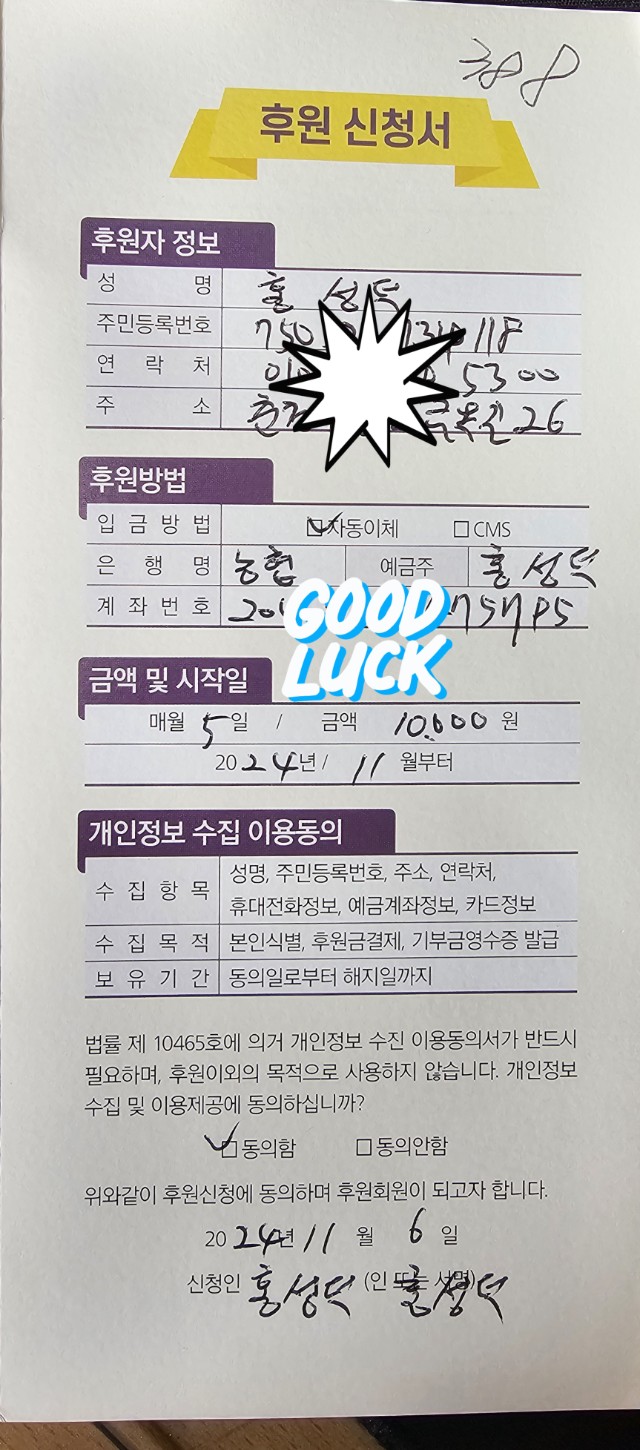 후원 신청서
후원자 정보
성 명 홍 성덕
주민등록번호 750 118
연 락 처 010 5300
주 소 26
후원방법
입금방법 자동이체 CMS
은 행 명 농협 예금주 홍성덕
계좌번호 20
GOOD
LUCK
금액 및 시작일
매월 5일 / 금액 10,000 원
2024년 / 11 월부터
개인정보 수집 이용동의
수집항목 성명, 주민등록번호, 주소, 연락처,
휴대전화정보, 예금계좌정보, 카드정보
수집목적 본인식별, 후원금결제, 기부금영수증 발급
보유기간 동의일로부터 해지일까지
법률 제 10465호에 의거 개인정보 수진 이용동의서가 반드시
필요하며, 후원이외의 목적으로 사용하지 않습니다. 개인정보
수집 및 이용제공에 동의하십니까?
동의함 동의안함
위와같이 후원신청에 동의하며 후원회원이 되고자 합니다.
2024년 11 월 6 일
신청인 홍성덕 (인 또는 서명) 홍성덕